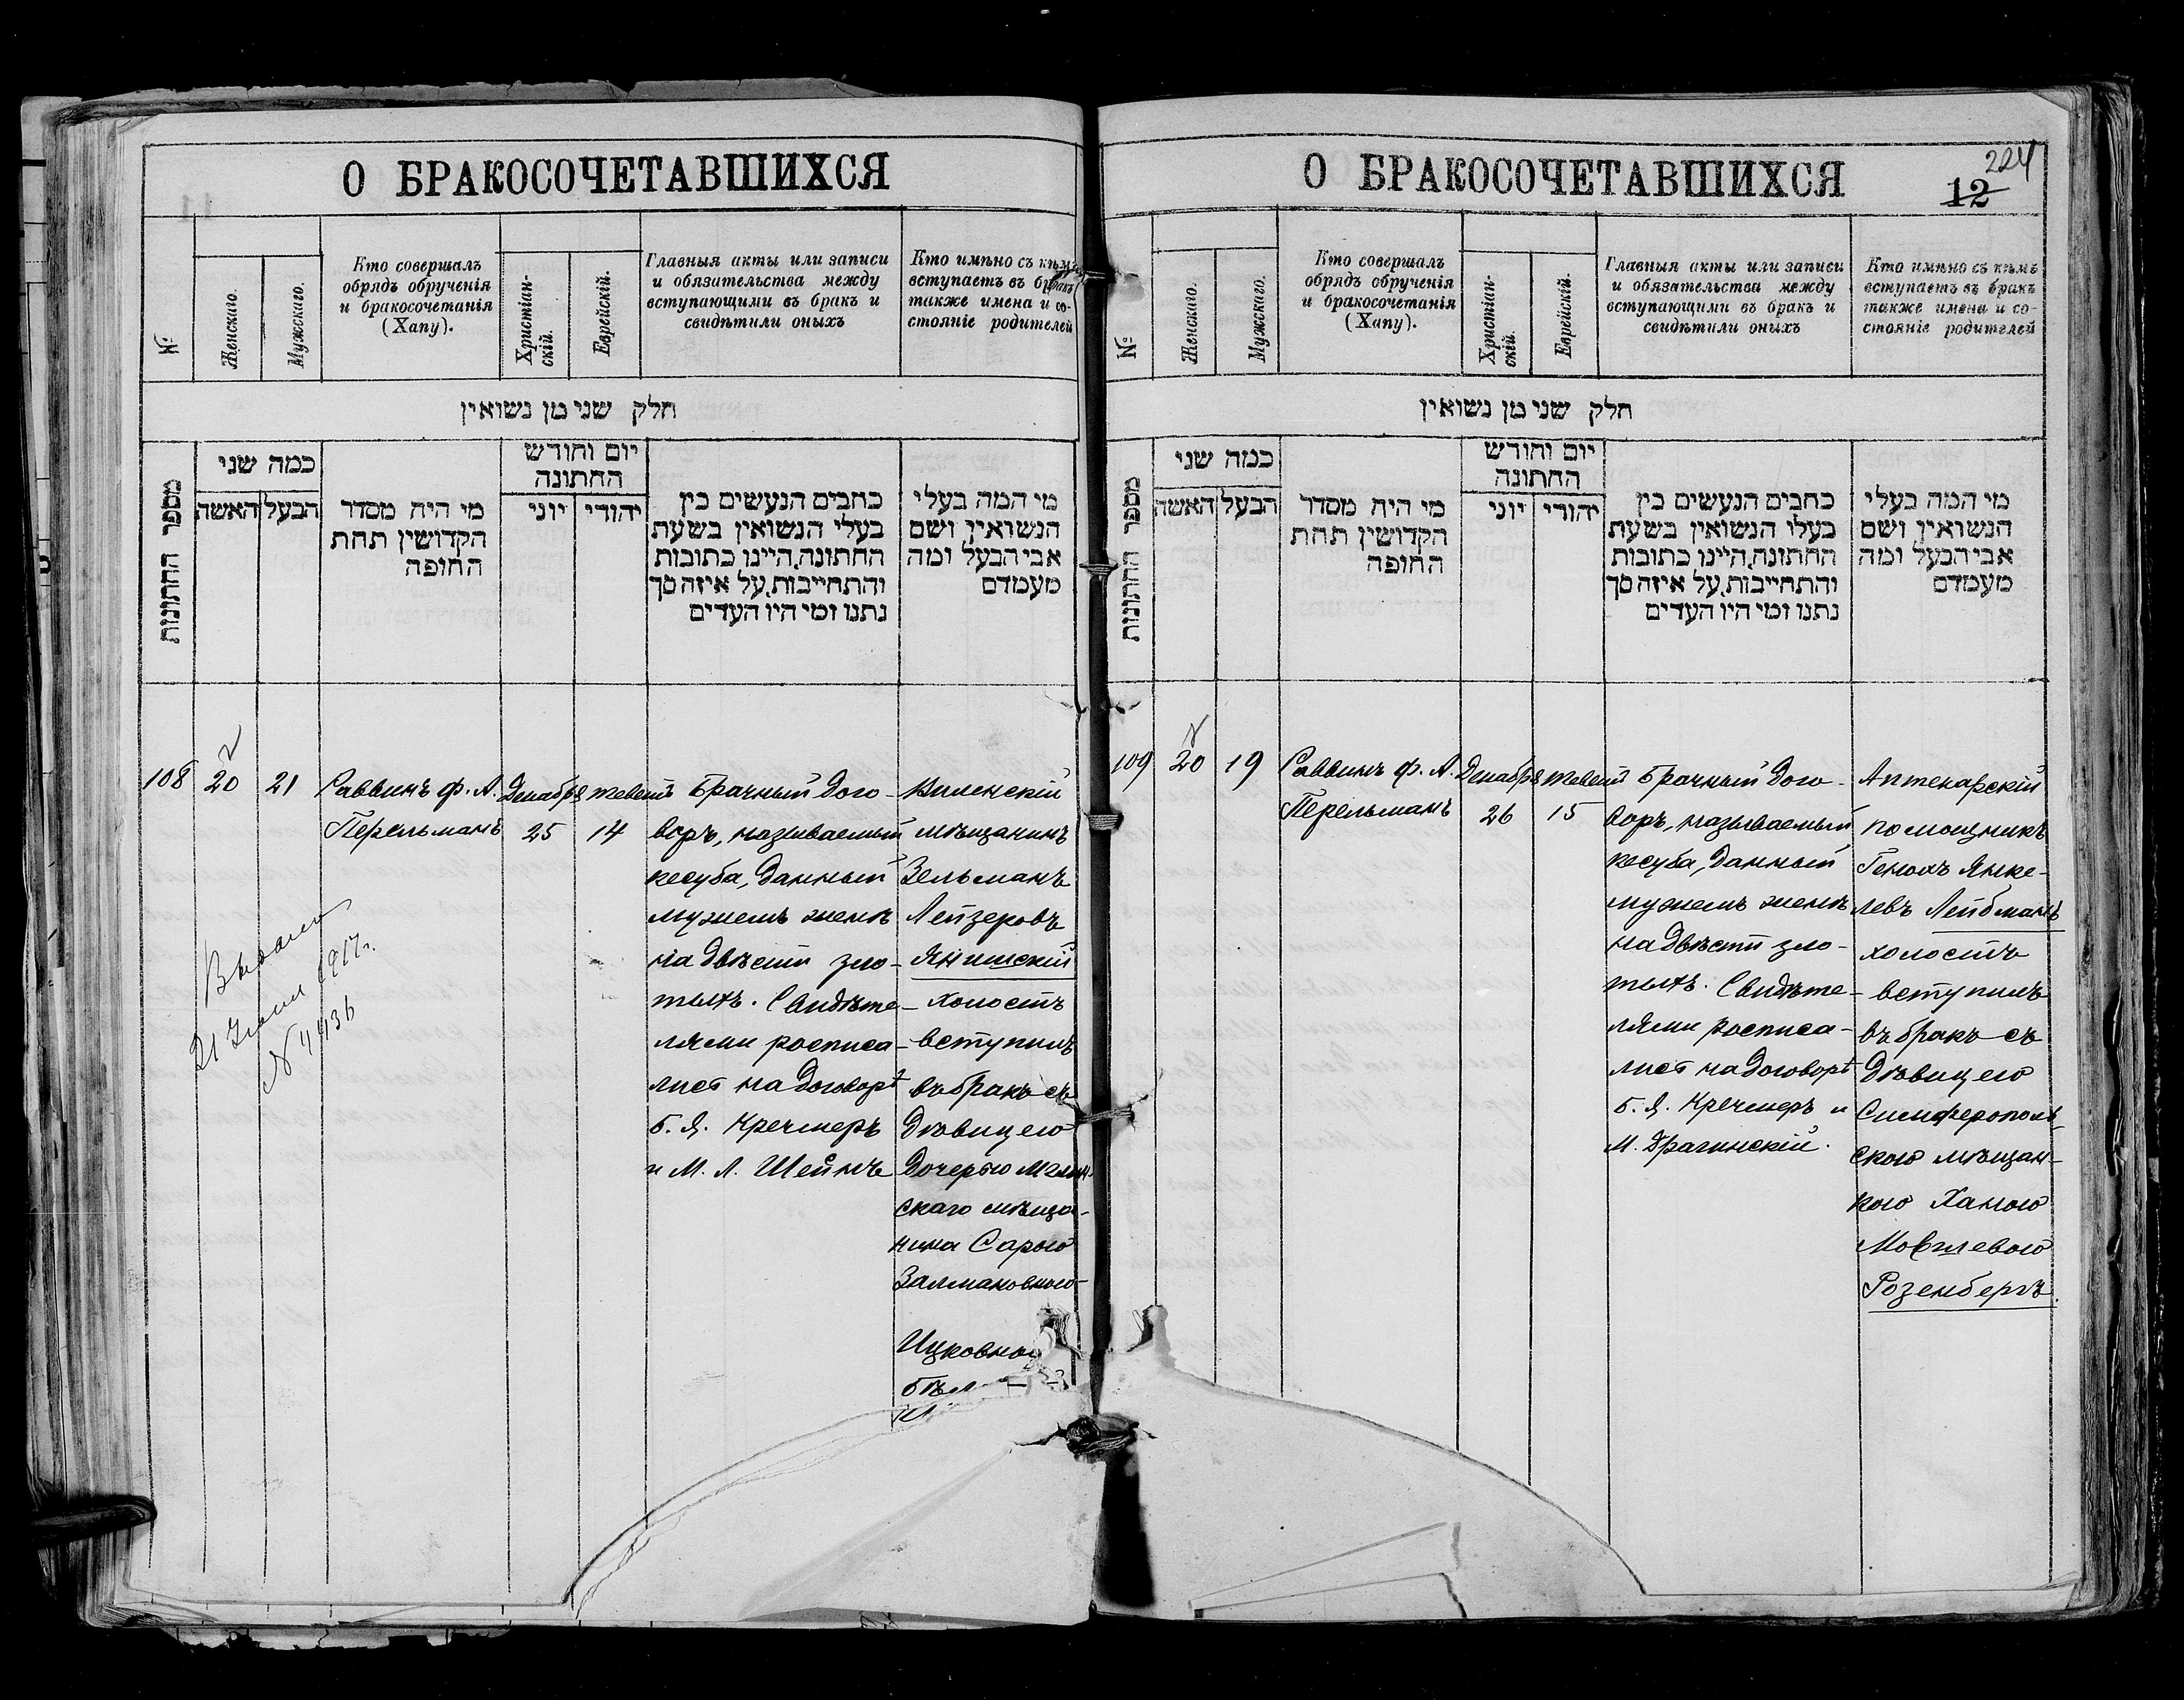 О БРАКОСОЧЕТАВШИХСЯ
№
Женскаго.
Мужскаго.
Кто совершалъ
обрядъ обрученія
и бракосочетанія
(Хапу).
Христіан-
скій.
Еврейскій.
Главныя акты или записи
и обязательства между
вступающими въ бракъ и
свидѣтили оныхъ
Кто имѣно съ кѣмъ
вступаетъ въ бракъ
также имена и со-
стояніе родителей
חלק שני מן נשואין
מספר החתונות
כמה שני
האשה
הבעל
מי היה מסדר
הקדושין תחת
החופה
יום וחודש
החתונה
יוני
יהודי
כתבים הנעשים בין
בעלי הנשואין בשעת
החתונה, היינו כתובות
והתחייבות, על איזה סך
נתנו ומי היו העדים
מי המה בעלי
הנשואין ושם
אבי הבעל ומה
מעמדם
108
20
21
Раввинъ Ф. А.
Перельманъ
Декабря
25
тевейт
14
Брачный дого-
воръ, называемый
кесуба, данный
мужемъ женѣ
на двѣсти зло-
тыхъ. Свидѣте-
лями росписа-
лист на договорѣ
Б. Я. Кречмеръ
и М. Л. Шейнъ
Виленскій
мѣщанинъ
Зельманъ
Лейзеровъ
Янишскій
холостъ
вступилъ
въ бракъ съ
дѣвицею
дочерью
скаго мѣща-
нина Сарою
Залмановною-
Ицковною
21 1917г.
О БРАКОСОЧЕТАВШИХСЯ
224
12
№
Женскаго.
Мужскаго.
Кто совершалъ
обрядъ обрученія
и бракосочетанія
(Хапу).
Христіан-
скій.
Еврейскій.
Главныя акты или записи
и обязательства между
вступающими въ бракъ и
свидѣтили оныхъ
Кто имѣно съ кѣмъ
вступаетъ въ бракъ
также имена и со-
стояніе родителей
חלק שני מן נשואין
מספר החתונות
כמה שני
האשה
הבעל
מי היה מסדר
הקדושין תחת
החופה
יום וחודש
החתונה
יוני
יהודי
כתבים הנעשים בין
בעלי הנשואין בשעת
החתונה, היינו כתובות
והתחייבות, על איזה סך
נתנו ומי היו העדים
מי המה בעלי
הנשואין ושם
אבי הבעל ומה
מעמדם
109
20
19
Раввинъ Ф. А.
Перельманъ
Декабря
26
тевейт
15
Брачный дого-
воръ, называемый
кесуба, данный
мужемъ женѣ
на двѣсти зло-
тыхъ. Свидѣте-
лями росписа-
лист на договорѣ
Б. Я. Кречмеръ и
М. Драгинскій.
Аптекарскій
помощникъ
Генохъ Янке-
левъ Лейбманъ
холостъ
вступилъ
въ бракъ съ
дѣвицею
Симферополь-
скою мѣщан-
кою Ханою
Мовшевою
Розенбергъ.